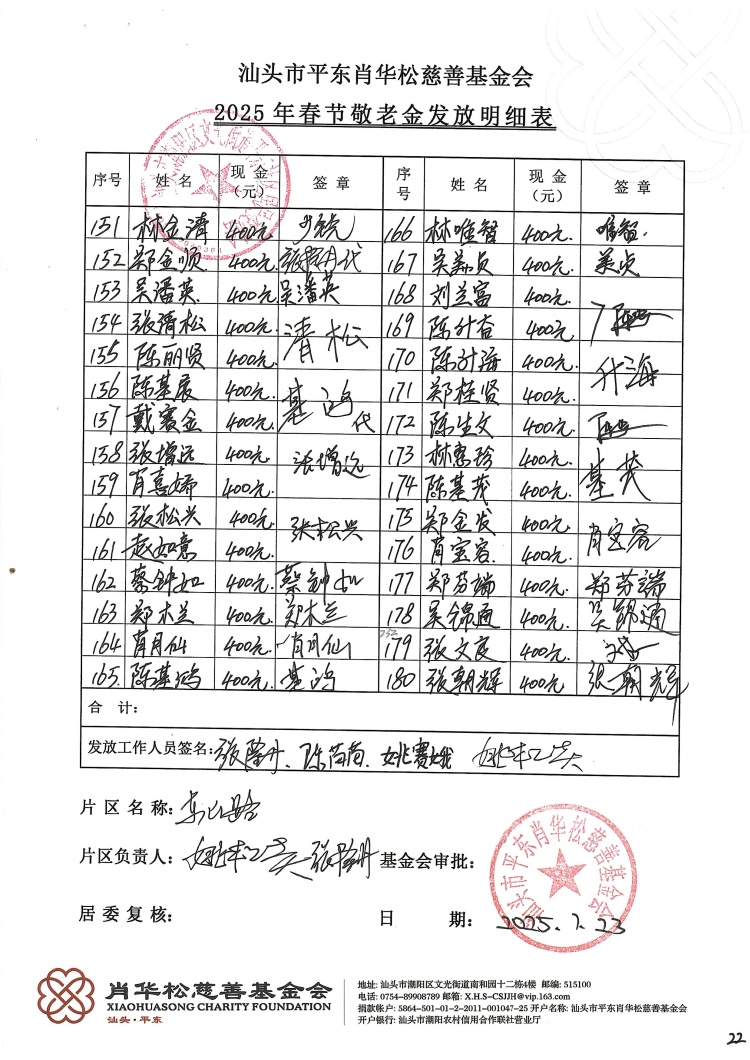 汕头市平东肖华松慈善基金会
2025年春节敬老金发放明细表
序号 姓名 现金(元) 签章 序号 姓名 现金(元) 签章
151 林金涛 400元. 166 林唯智 400元. 唯智.
152 郑金顺 400元. 167 吴美贞 400元. 美贞
153 吴潘英 400元 吴潘英 168 刘兰富 400元.
154 张清松 400元. 清松 169 陈计谷 400元.
155 陈丽贤 400元. 170 陈升海 400元. 升海
156 陈基展 400元. 基鸿代 171 郑桂贤 400元.
157 戴赛金 400元. 172 陈生文 400元.
158 张增远 400元. 张增远 173 林惠珍 400元.
159 肖喜婵 400元. 174 陈基茂 400元. 基茂
160 张松兴 400元. 张松兴 175 郑金发 400元.
161 赵如意 400元. 176 肖宝容 400元. 肖宝容
162 蔡钟如 400元. 蔡钟如 177 郑芬端 400元. 郑芬端
163 郑木兰 400元. 郑木兰 178 吴锦通 400元. 吴锦通
164 肖月仙 400元. 肖月仙 179 张文良 400元.
165 陈基鸿 400元. 基鸿 180 张朝辉 400元. 张朝辉
合计:
发放工作人员签名: 陈茵茵. 姚赛娥
片区名称:
片区负责人: 基金会审批:
汕头市平东肖华松慈善基金会
居委复核: 日期: 2025.1.23
肖华松慈善基金会
XIAOHUASONG CHARITY FOUNDATION
汕头·平东
地址: 汕头市潮阳区文光街道南和园十二栋4楼 邮编: 515100
电话: 0754-89908789 邮箱: X.H.S-CSJJH@vip.163.com
捐款帐户: 5864-501-01-2-2011-001047-25 开户名称: 汕头市平东肖华松慈善基金会
开户银行: 汕头市潮阳农村信用合作联社营业厅
22